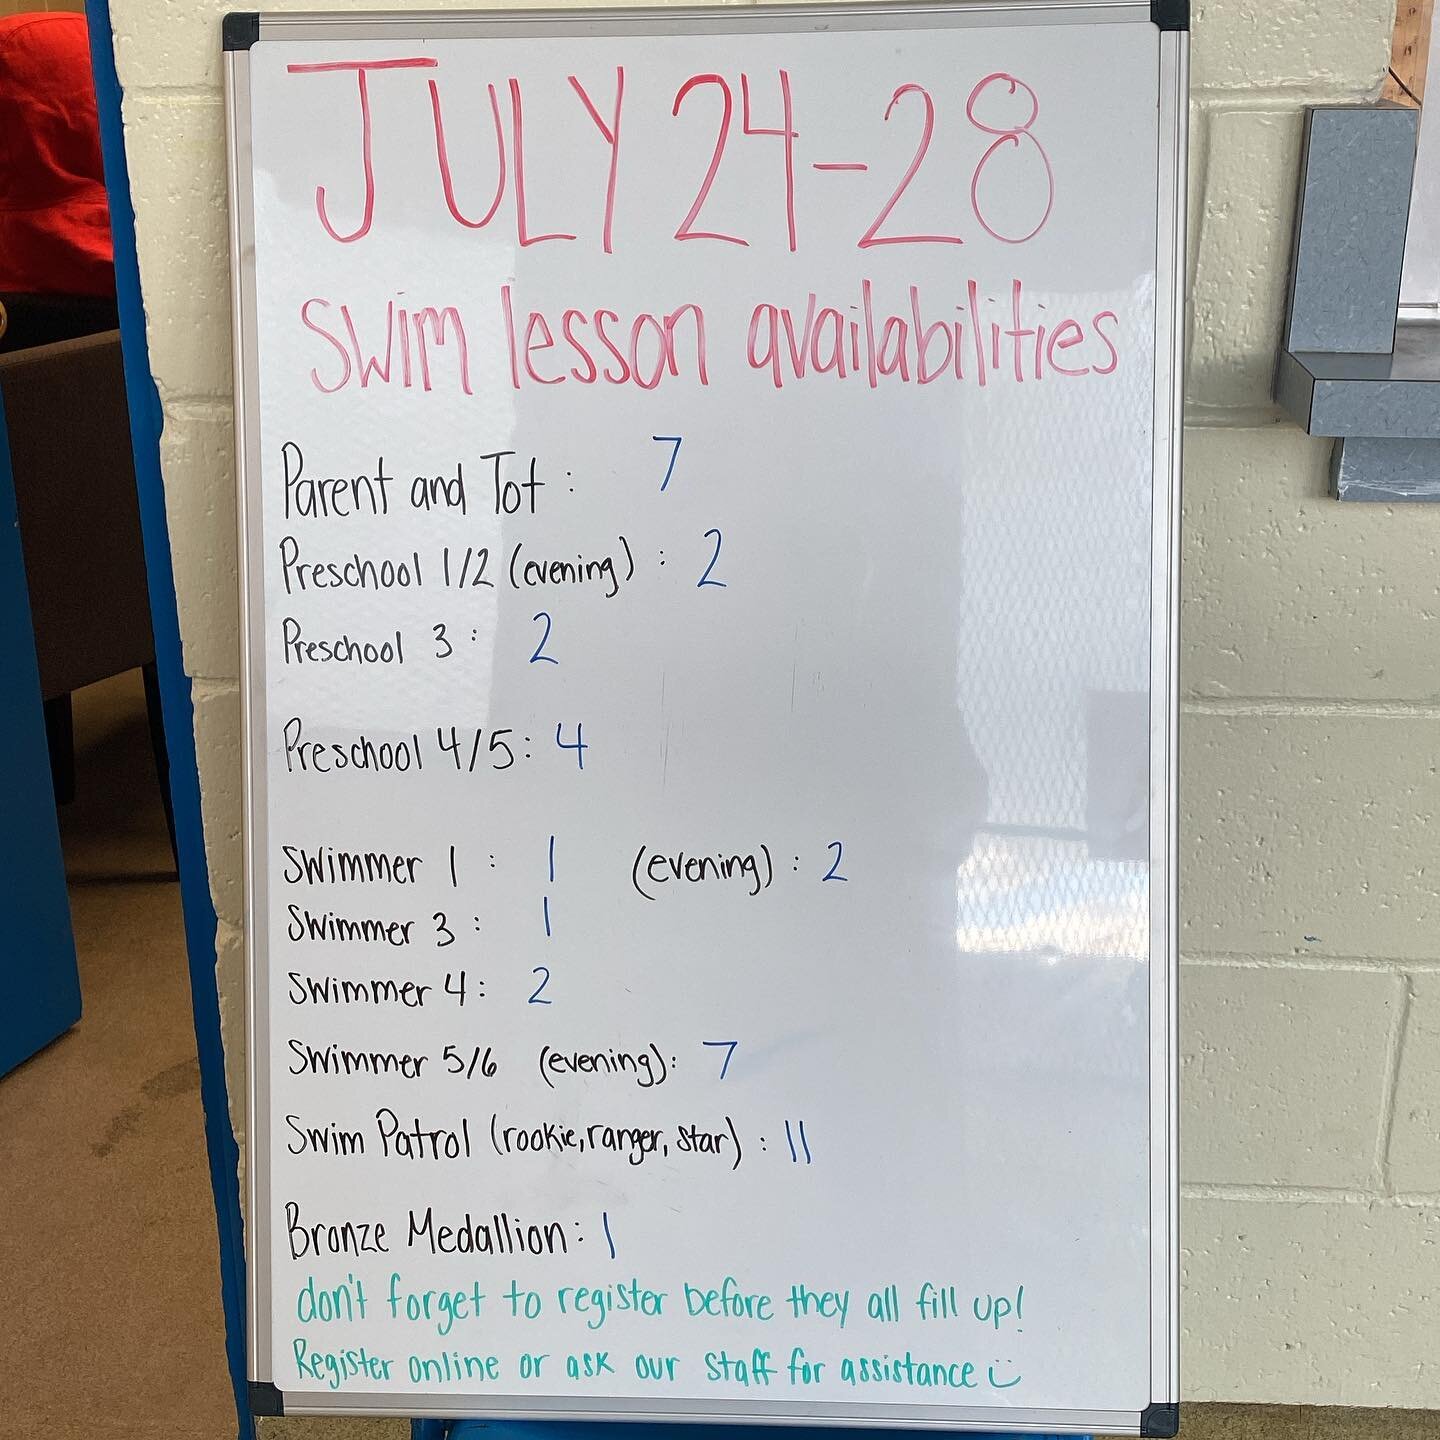 JULY 24-28
swim lesson availabilities
Parent and Tot : 7
Preschool 1/2 (evening) : 2
Preschool 3 : 2
Preschool 4/5: 4
Swimmer 1 : 1 (evening) : 2
Swimmer 3 : 1
Swimmer 4 : 2
Swimmer 5/6 (evening): 7
Swim Patrol (rookie, ranger, star) : 11
Bronze Medallion: 1
don't forget to register before they all fill up!
Register online or ask our staff for assistance ☺